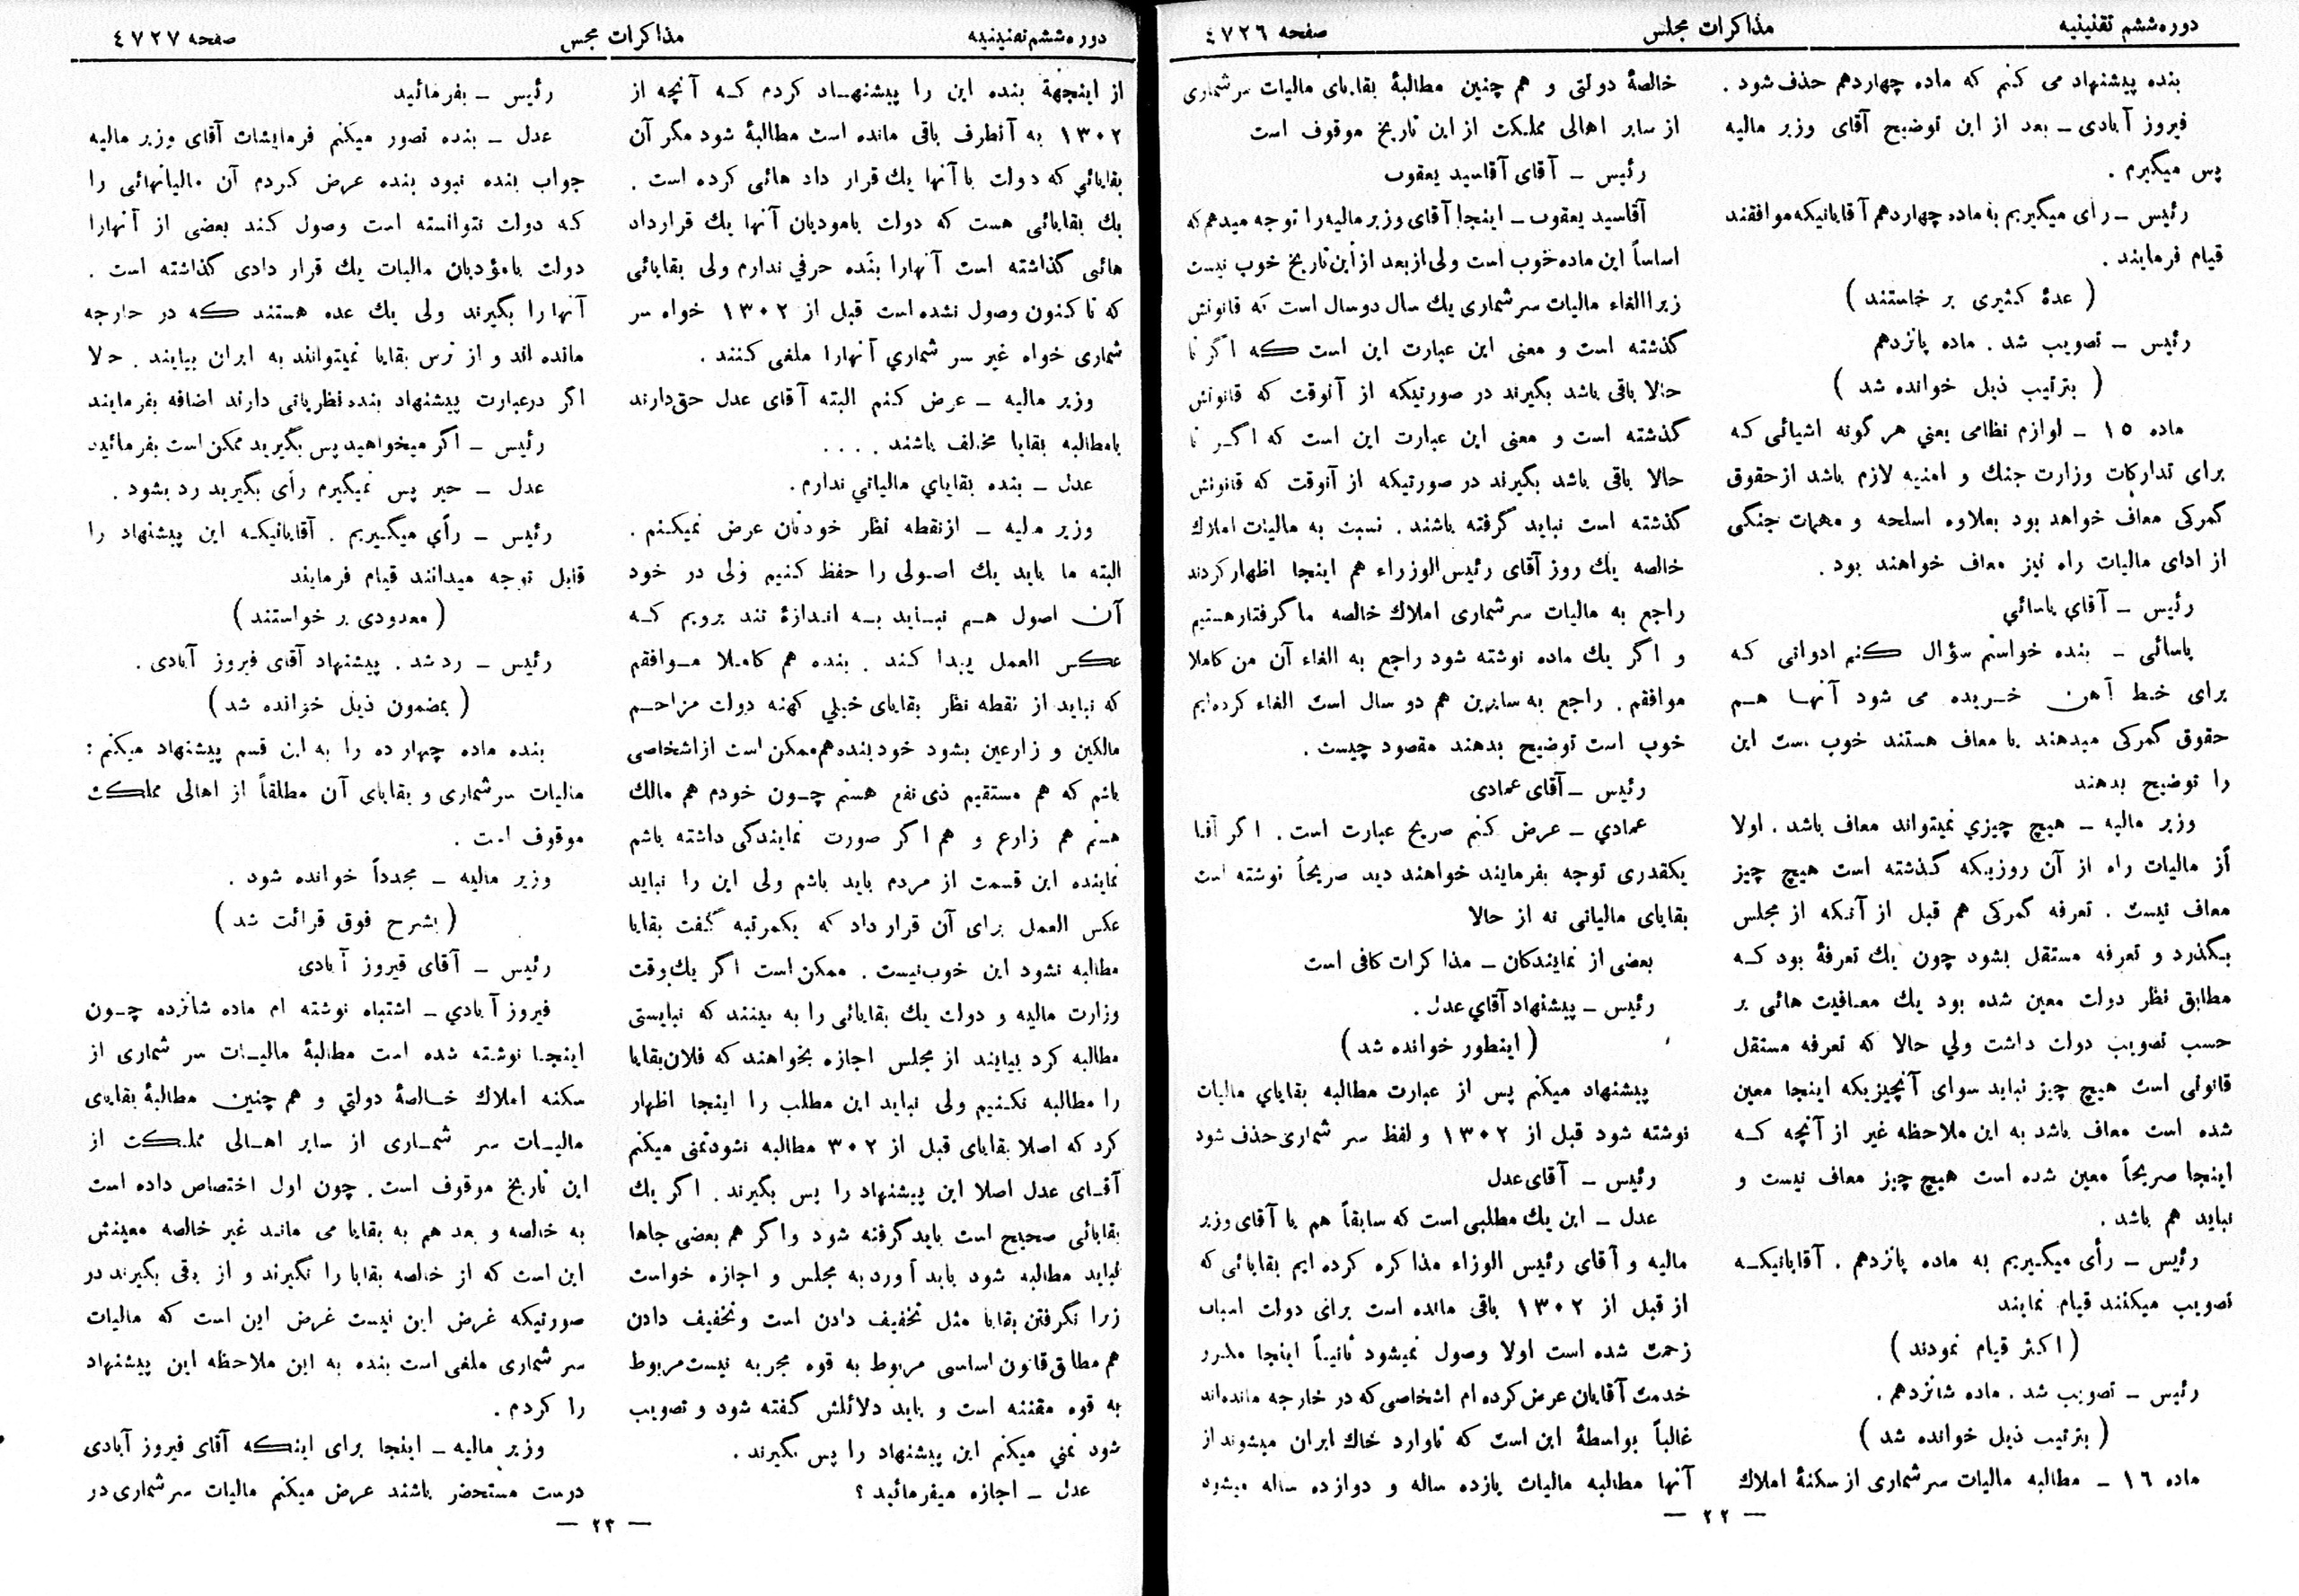 دوره ششم تقنینیه
مذاکرات مجلس
صفحه ٤٧٢٦
بنده پیشنهاد می کنم که ماده چهاردهم حذف شود .
فیروز آبادی ــ بعد از این توضیح آقای وزیر مالیه
پس میگیرم .
رئیس ــ رأی میگیریم به ماده چهاردهم آقایانیکه موافقند
قیام فرمایند .
( عدهٔ کثیری بر خاستند )
رئیس ــ تصویب شد . ماده پانزدهم
( بترتیب ذیل خوانده شد )
ماده ١٥ ــ لوازم نظامی یعني هر گونه اشیائی که
برای تدارکات وزارت جنك و امنیه لازم باشد از حقوق
گمرکی معاف خواهد بود بعلاوه اسلحه و مهمات جنگی
از ادای مالیات راه نیز معاف خواهند بود .
رئیس ــ آقاي یاسائي
یاسائی ــ بنده خواستم سؤال کنم ادواتی که
برای خط آهن خریده می شود آنها هم
حقوق گمرکی میدهند یا معاف هستند خوب است این
را توضیح بدهند
وزیر مالیه ــ هیچ چیزي نمیتواند معاف باشد . اولا
از مالیات راه از آن روزیکه گذشته است هیچ چیز
معاف نیست . تعرفه گمرکی هم قبل از آنکه از مجلس
بگذرد و تعرفه مستقل بشود چون یك تعرفهٔ بود که
مطابق نظر دولت معین شده بود یك معافیت هائی بر
حسب تصویب دولت داشت ولي حالا که تعرفه مستقل
قانونی است هیچ چیز نباید سوای آنچیزیکه اینجا معین
شده است معاف باشد به این ملاحظه غیر از آنچه که
اینجا صریحاً معین شده است هیچ چیز معاف نیست و
نباید هم باشد .
رئیس ــ رأی میگیریم به ماده پانزدهم . آقایانیکه
تصویب میکنند قیام نمایند
( اکثر قیام نمودند )
رئیس ــ تصویب شد . ماده شانزدهم .
( بترتیب ذیل خوانده شد )
ماده ١٦ ــ مطالبه مالیات سرشماری از سکنهٔ املاك
خالصهٔ دولتی و هم چنین مطالبهٔ بقایای مالیات سرشماری
از سایر اهالی مملکت از این تاریخ موقوف است
رئیس ــ آقای آقاسید یعقوب
آقاسید یعقوب ــ اینجا آقای وزیر مالیه را توجه میدهم که
اساساً این ماده خوب است ولی از بعد از این تاریخ خوب نیست
زیرا الغاء مالیات سرشماری یك سال دو سال است که قانونش
گذشته است و معنی این عبارت این است که اگر تا
حالا باقی باشد بگیرند در صورتیکه از آنوقت که قانونش
گذشته است و معنی این عبارت این است که اگر تا
حالا باقی باشد بگیرند در صورتیکه از آنوقت که قانونش
گذشته است نباید گرفته باشند . نسبت به مالیات املاك
خالصه یك روز آقای رئیس الوزراء هم اینجا اظهار کردند
راجع به مالیات سرشماری املاك خالصه ما گرفتار هستیم
و اگر یك ماده نوشته شود راجع به الغاء آن من کاملا
موافقم . راجع به سایرین هم دو سال است الغاء کرده‌ایم
خوب است توضیح بدهند مقصود چیست .
رئیس ــ آقای عمادی
عمادي ــ عرض کنم صریح عبارت است . اگر آقا
یکقدری توجه بفرمایند خواهند دید صریحاً نوشته است
بقایای مالیاتی نه از حالا
بعضی از نمایندگان ــ مذاکرات کافی است
رئیس ــ پیشنهاد آقاي عدل .
( اینطور خوانده شد )
پیشنهاد میکنم پس از عبارت مطالبه بقایاي مالیات
نوشته شود قبل از ١٣٠٢ و لفظ سر شماری حذف شود
رئیس ــ آقای عدل
عدل ــ این یك مطلبی است که سابقاً هم با آقای وزیر
مالیه و آقای رئیس الوزاء مذاکره کرده ایم بقایائی که
از قبل از ١٣٠٢ باقی مانده است برای دولت اسباب
زحمت شده است اولا وصول نمیشود ثانیاً اینجا مکرر
خدمت آقایان عرض کرده ام اشخاصی که در خارجه مانده‌اند
غالباً بواسطهٔ این است که تا وارد خاك ایران میشوند از
آنها مطالبه مالیات یازده ساله و دوازده ساله میشود
— ٢٢ —
دوره ششم تقنینیه
مذاکرات مجس
صفحه ٤٧٢٧
از اینجهة بنده این را پیشنهاد کردم که آنچه از
١٣٠٢ به آنطرف باقی مانده است مطالبهٔ شود مگر آن
بقایائي که دولت با آنها یك قرار داد هائی کرده است .
یك بقایائی هست که دولت بامودیان آنها یك قرارداد
هائی گذاشته است آنهارا بنده حرفي ندارم ولی بقایائی
که تا کنون وصول نشده است قبل از ١٣٠٢ خواه سر
شماری خواه غیر سر شماري آنهارا ملغی کنند .
وزیر مالیه ــ عرض کنم البته آقای عدل حق دارند
بامطالبه بقایا مخالف باشند . . . .
عدل ــ بنده بقایاي مالیاتي ندارم .
وزیر مالیه ــ از نقطه نظر خودتان عرض نمیکنم .
البته ما باید یك اصولی را حفظ کنیم ولی در خود
آن اصول هم نباید به اندازهٔ تند برویم که
عکس العمل پیدا کند . بنده هم کاملا موافقم
که نباید از نقطه نظر بقایای خیلي کهنه دولت مزاحم
مالکین و زارعین بشود خود بنده هم ممکن است از اشخاصی
باشم که هم مستقیم ذی نفع هستم چون خودم هم مالك
هستم هم زارع و هم اگر صورت نمایندگی داشته باشم
نماینده این قسمت از مردم باید باشم ولی این را نباید
عکس العمل برای آن قرار داد که یکمرتبه گفت بقایا
مطالبه نشود این خوب نیست . ممکن است اگر یك وقت
وزارت مالیه و دولت یك بقایائی را به بینند که نبایستی
مطالبه کرد بیایند از مجلس اجازه بخواهند که فلان بقایا
را مطالبه نکنیم ولی نباید این مطلب را اینجا اظهار
کرد که اصلا بقایای قبل از ٣٠٢ مطالبه نشود تمنی میکنم
آقای عدل اصلا این پیشنهاد را پس بگیرند . اگر یك
بقایائی صحیح است باید گرفته شود و اگر هم بعضی جاها
نباید مطالبه شود باید آورد به مجلس و اجازه خواست
زیرا نگرفتن بقایا مثل تخفیف دادن است و تخفیف دادن
هم مطابق قانون اساسی مربوط به قوه مجریه نیست مربوط
به قوه مقننه است و باید دلائلش گفته شود و تصویب
شود تمني میکنم این پیشنهاد را پس بگیرند .
عدل ــ اجازه میفرمائید ؟
رئیس ــ بفرمائید
عدل ــ بنده تصور میکنم فرمایشات آقای وزیر مالیه
جواب بنده نبود بنده عرض کردم آن مالیاتهائی را
که دولت نتوانسته است وصول کند بعضی از آنهارا
دولت بامؤدیان مالیات یك قرار دادی گذاشته است .
آنها را بگیرند ولی یك عده هستند که در خارجه
مانده اند و از ترس بقایا نمیتوانند به ایران بیایند . حالا
اگر در عبارت پیشنهاد بنده نظریاتی دارند اضافه بفرمایند
رئیس ــ اگر میخواهید پس بگیرید ممکن است بفرمائید
عدل ــ خیر پس نمیگیرم رأی بگیرید رد بشود .
رئیس ــ رأي میگیریم . آقایانیکه این پیشنهاد را
قابل توجه میدانند قیام فرمایند
( معدودی بر خواستند )
رئیس ــ رد شد . پیشنهاد آقای فیروز آبادی .
( بمضمون ذیل خوانده شد )
بنده ماده چهار ده را به این قسم پیشنهاد میکنم :
مالیات سرشماری و بقایای آن مطلقاً از اهالی مملکت
موقوف است .
وزیر مالیه ــ مجدداً خوانده شود .
( بشرح فوق قرائت شد )
رئیس ــ آقای فیروز آبادی
فیروز آبادي ــ اشتباه نوشته ام ماده شانزده چون
اینجا نوشته شده است مطالبهٔ مالیات سر شماری از
سکنه املاك خالصهٔ دولتي و هم چنین مطالبهٔ بقایای
مالیات سر شماری از سایر اهالی مملکت از
این تاریخ موقوف است . چون اول اختصاص داده است
به خالصه و بعد هم به بقایا می ماند غیر خالصه معینش
این است که از خالصه بقایا را نگیرند و از باقی بگیرند در
صورتیکه غرض این نیست غرض این است که مالیات
سر شماری ملغی است بنده به این ملاحظه این پیشنهاد
را کردم .
وزیر مالیه ــ اینجا برای اینکه آقای فیروز آبادی
درست مستحضر باشند عرض میکنم مالیات سر شماری در
— ٢٣ —